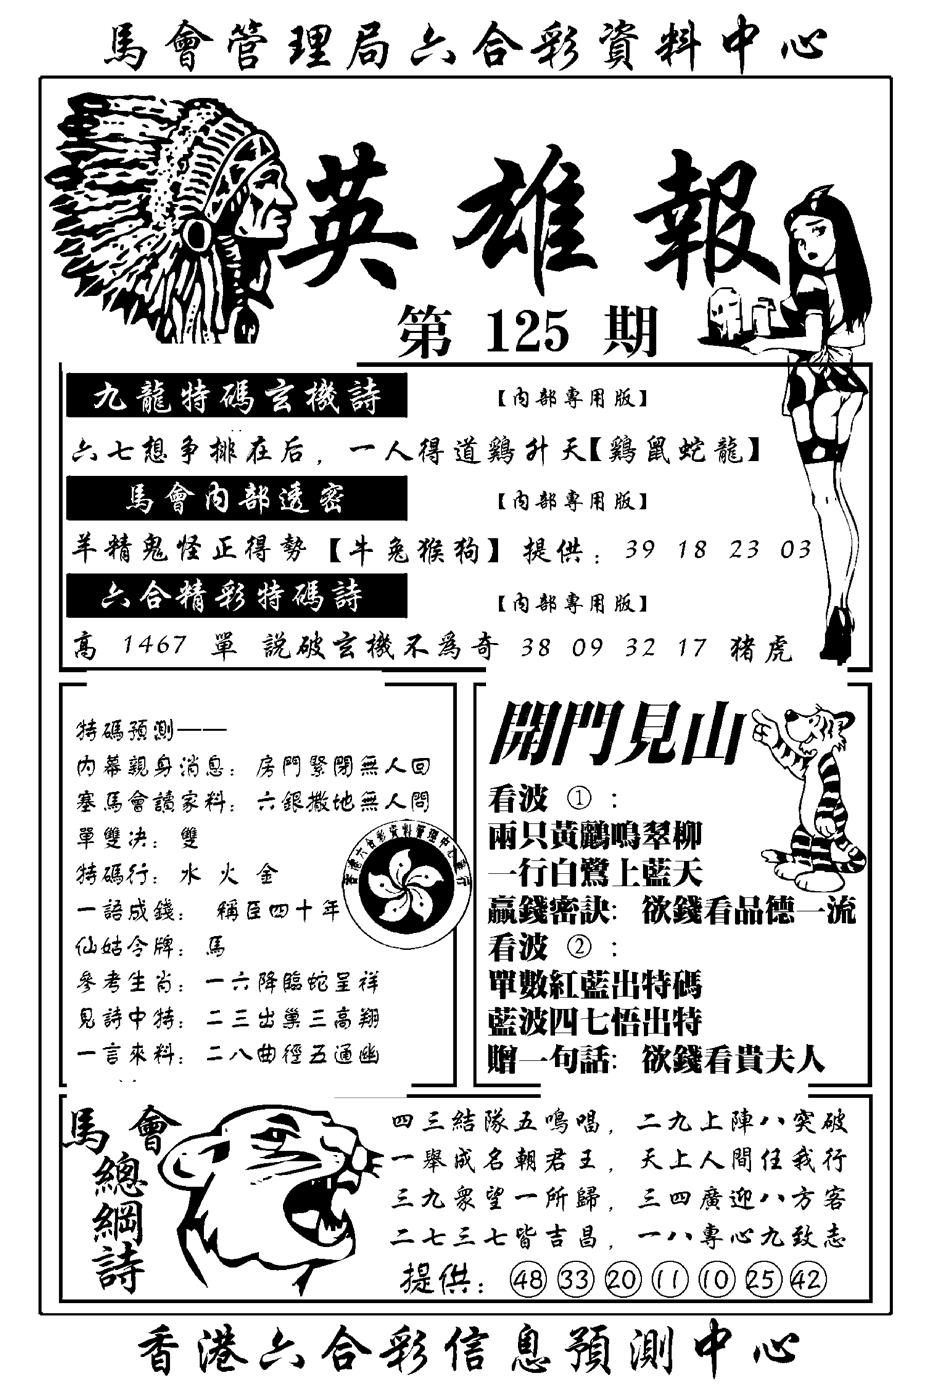 馬會管理局六合彩資料中心
英雄報
第 125 期
九龍特碼玄機詩 【內部專用版】
六七想争排在后，一人得道鷄升天【鷄鼠蛇龍】
馬會內部透密 【內部專用版】
羊精鬼怪正得勢【牛兔猴狗】提供：39 18 23 03
六合精彩特碼詩 【內部專用版】
高 1467 單 説破玄機不爲奇 38 09 32 17 猪虎
特碼預測——
内幕親身消息：房門緊閉無人回
塞馬會讀家料：六銀撒地無人問
單雙决：雙
特碼行：水 火 金
一語成錢： 稱臣四十年
仙姑令牌：馬
參考生肖：一六降臨蛇呈祥
見詩中特：二三出巢三高翔
一言來料：二八曲徑五通幽
開門見山
看波 ①：
兩只黄鸝鳴翠柳
一行白鷺上藍天
贏錢密訣：欲錢看品德一流
看波 ②：
單數紅藍出特碼
藍波四七悟出特
贈一句話：欲錢看貴夫人
馬會
總綱詩
四三結隊五鳴唱，二九上陣八突破
一舉成名朝君王，天上人間任我行
三九衆望一所歸，三四廣迎八方客
二七三七皆吉昌，一八專心九致志
提供：48 33 20 11 10 25 42
香港六合彩信息預測中心